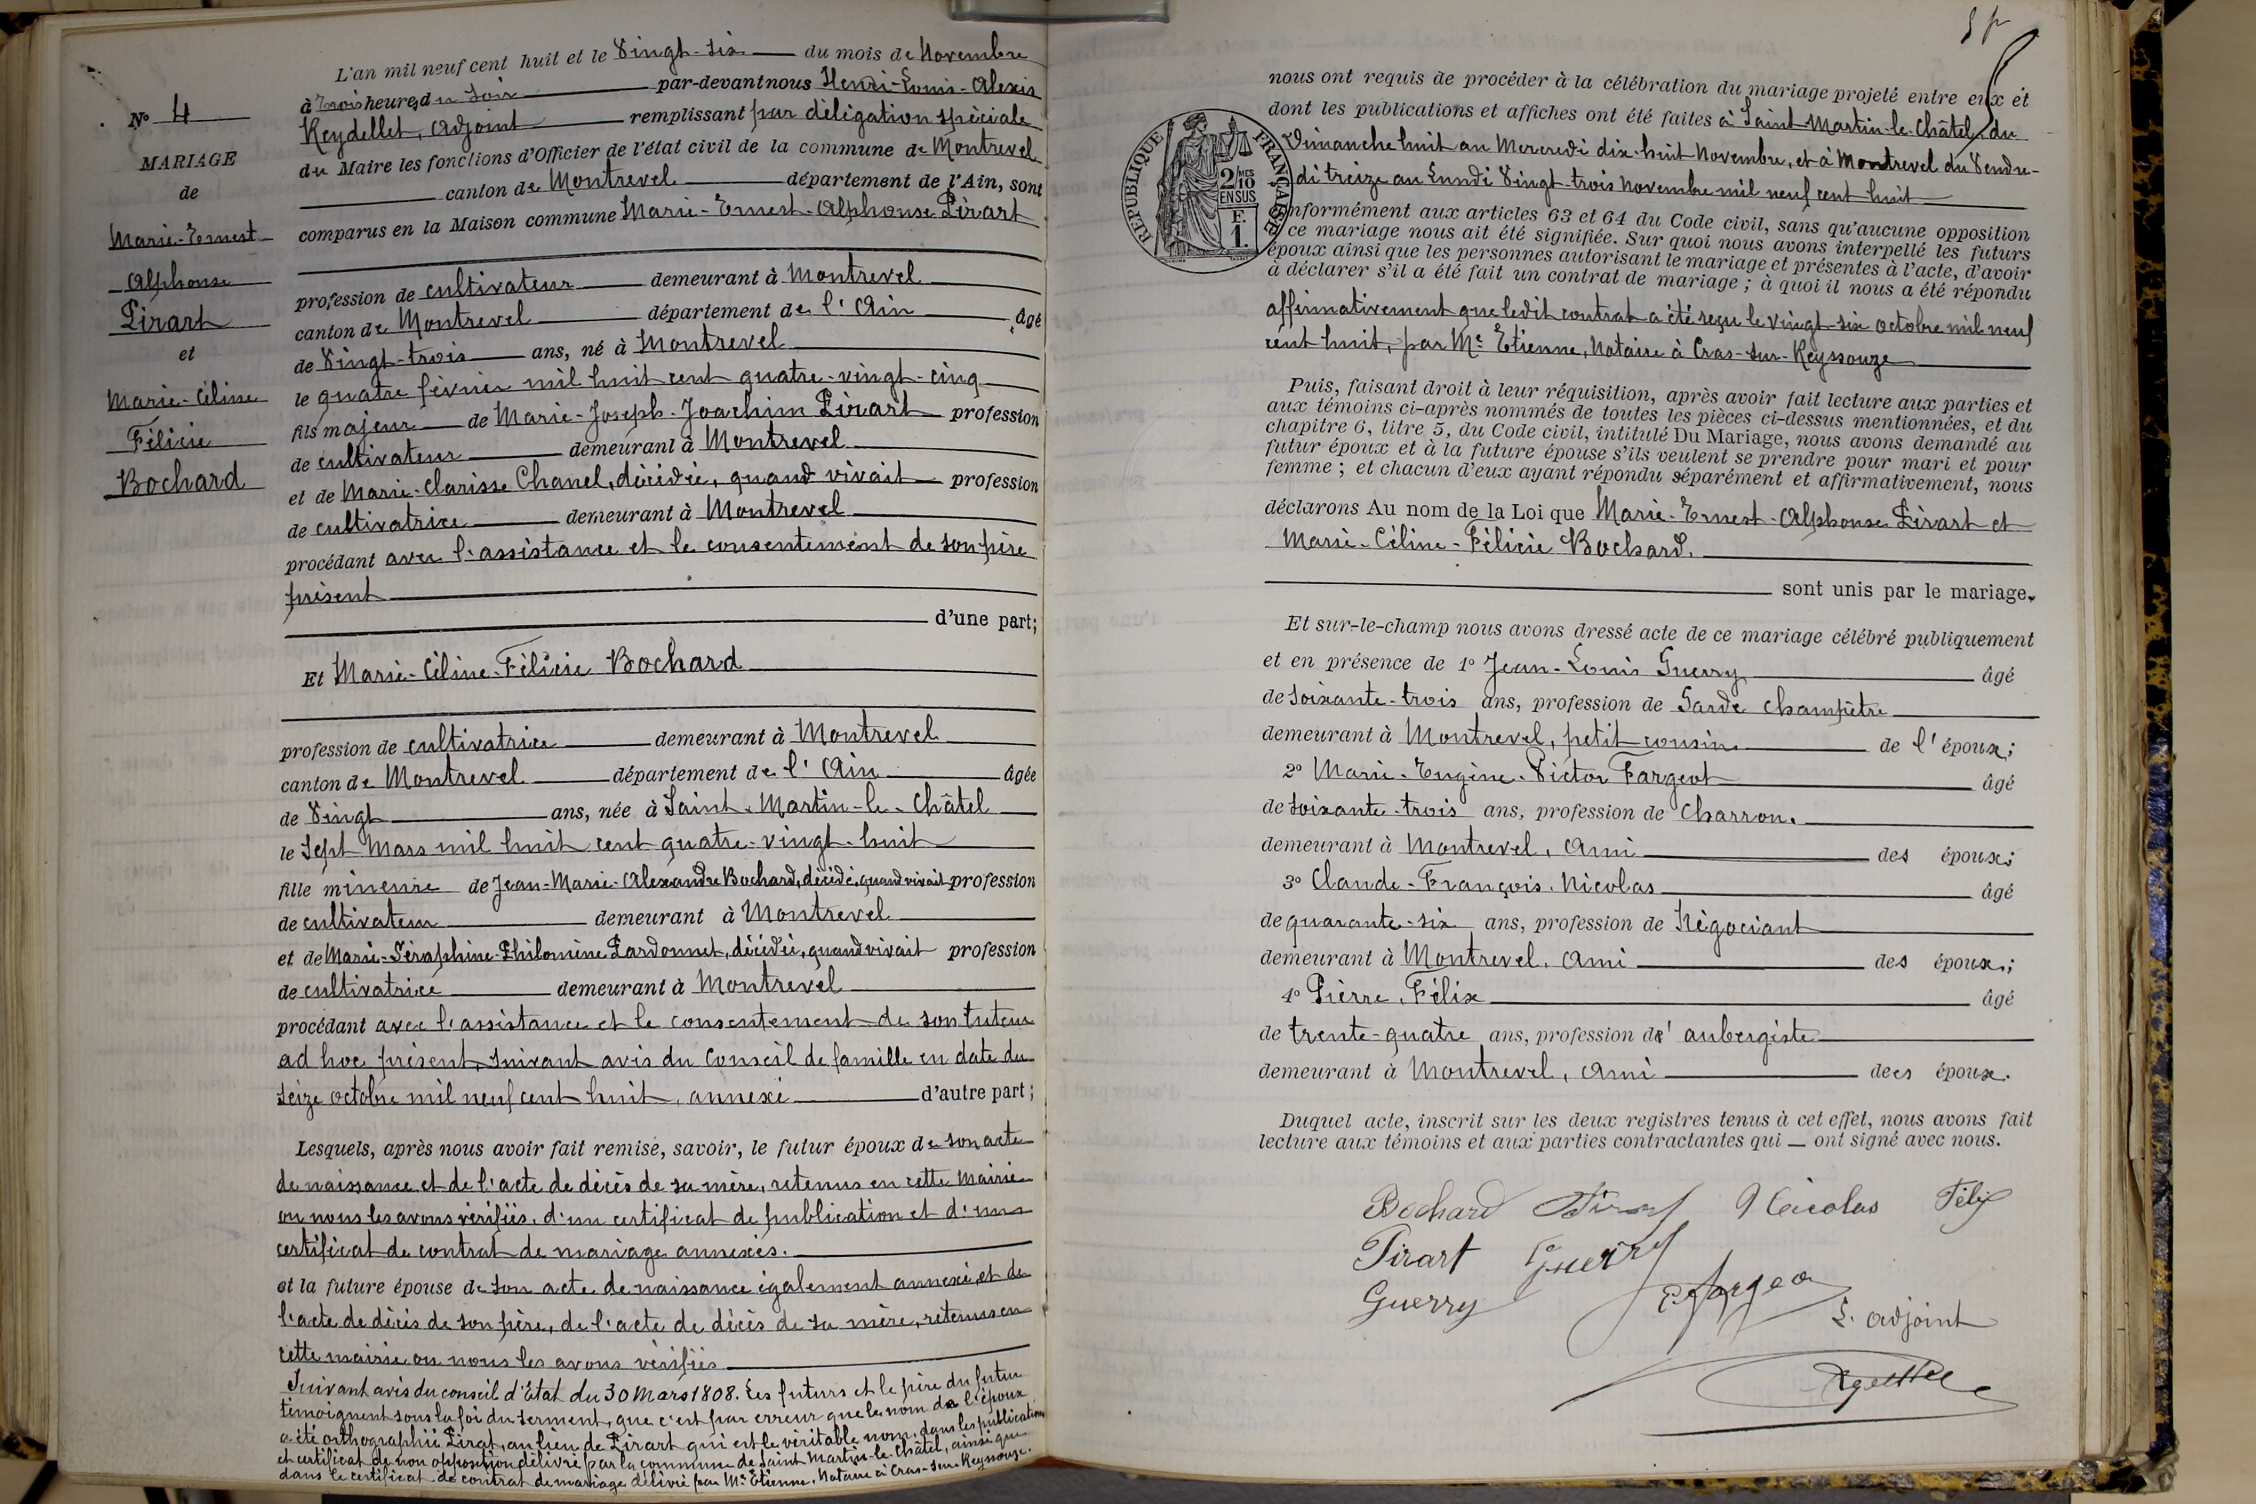 L'an mil neuf cent huit et le Vingt-six du mois de Novembre
à Trois heures du soir par-devant nous Henri-Louis-Alexis
Reydellet, Adjoint remplissant par délégation spéciale
du Maire les fonctions d'Officier de l'état civil de la commune de Montrevel
canton de Montrevel département de l'Ain, sont
comparus en la Maison commune Marie-Ernest-Alphonse Pirart
profession de cultivateur demeurant à Montrevel
canton de Montrevel département de l'Ain âgé
de Vingt-trois ans, né à Montrevel
le quatre février mil huit cent quatre-vingt-cinq
fils majeur de Marie-Joseph-Joachim Pirart profession
de cultivateur demeurant à Montrevel
et de Marie-Clarisse Chanel, décédée, quand vivait profession
de cultivatrice demeurant à Montrevel
procédant avec l'assistance et le consentement de son père
présent
d'une part;
Et Marie-Céline-Félicie Bochard
profession de cultivatrice demeurant à Montrevel
canton de Montrevel département de l'Ain âgée
de Vingt ans, née à Saint-Martin-le-Châtel
le Sept Mars mil huit cent quatre-vingt-huit
fille mineure de Jean-Marie-Alexandre Bochard, décédé, quand vivait profession
de cultivateur demeurant à Montrevel
et de Marie-Séraphine-Philomène Pardonnet, décédée, quand vivait profession
de cultivatrice demeurant à Montrevel
procédant avec l'assistance et le consentement de son tuteur
ad hoc présent, suivant avis du Conseil de famille en date du
seize octobre mil neuf cent huit, annexé d'autre part;
Lesquels, après nous avoir fait remise, savoir, le futur époux de son acte
de naissance et de l'acte de décès de sa mère, retenus en cette Mairie
ou nous les avons vérifiés, d'un certificat de publication et d'un
certificat de contrat de mariage annexés.
et la future épouse de son acte de naissance également annexé, et de
l'acte de décès de son père, de l'acte de décès de sa mère, retenus en
cette mairie ou nous les avons vérifiés
Suivant avis du conseil d'Etat du 30 Mars 1808. Les futurs et le père du futur
témoignent sous la foi du serment, que c'est par erreur que le nom de l'époux
a été orthographié Pirat, au lieu de Pirart qui est le véritable nom, dans les publication
et certificat de non opposition délivré par la commune de Saint Martin-le-Châtel, ainsi que
dans le certificat de contrat de mariage délivré par Me Etienne, Notaire à Cras-sur-Reyssouze.
No 4
MARIAGE
de
Marie-Ernest
Alphonse
Pirart
et
Marie-Céline
Félicie
Bochard
nous ont requis de procéder à la célébration du mariage projeté entre eux et
dont les publications et affiches ont été faites à Saint-Martin-le-Châtel, du
Dimanche huit au Mercredi dix-huit Novembre, et à Montrevel du Vendre-
di treize au Lundi Vingt-trois Novembre mil neuf cent huit
nformément aux articles 63 et 64 du Code civil, sans qu'aucune opposition
ce mariage nous ait été signifiée. Sur quoi nous avons interpellé les futurs
époux ainsi que les personnes autorisant le mariage et présentes à l'acte, d'avoir
à déclarer s'il a été fait un contrat de mariage ; à quoi il nous a été répondu
affirmativement que ledit contrat a été reçu le vingt-six octobre mil neuf
cent huit, par Me Etienne, Notaire à Cras-sur-Reyssouze
RÉPUBLIQUE FRANÇAISE
2/10 MES
EN SUS
F.
1.
Puis, faisant droit à leur réquisition, après avoir fait lecture aux parties et
aux témoins ci-après nommés de toutes les pièces ci-dessus mentionnées, et du
chapitre 6, titre 5, du Code civil, intitulé Du Mariage, nous avons demandé au
futur époux et à la future épouse s'ils veulent se prendre pour mari et pour
femme ; et chacun d'eux ayant répondu séparément et affirmativement, nous
déclarons Au nom de la Loi que Marie-Ernest-Alphonse Pirart et
Marie-Céline-Félicie Bochard.
sont unis par le mariage.
Et sur-le-champ nous avons dressé acte de ce mariage célébré publiquement
et en présence de 1° Jean-Louis Guerry âgé
de soixante-trois ans, profession de Garde Champêtre
demeurant à Montrevel, petit cousin de l'époux;
2° Marie-Eugène-Victor Fargeot âgé
de soixante-trois ans, profession de Charron.
demeurant à Montrevel, Ami des époux;
3° Claude-François Nicolas âgé
de quarante-six ans, profession de Négociant
demeurant à Montrevel, Ami des époux;
4° Pierre Félix âgé
de trente-quatre ans, profession d' aubergiste
demeurant à Montrevel, Ami des époux.
Duquel acte, inscrit sur les deux registres tenus à cet effet, nous avons fait
lecture aux témoins et aux parties contractantes qui ont signé avec nous.
Bochard Pirart Nicolas Félix
Pirart Guerry
Guerry E. Fargeot
L. adjoint